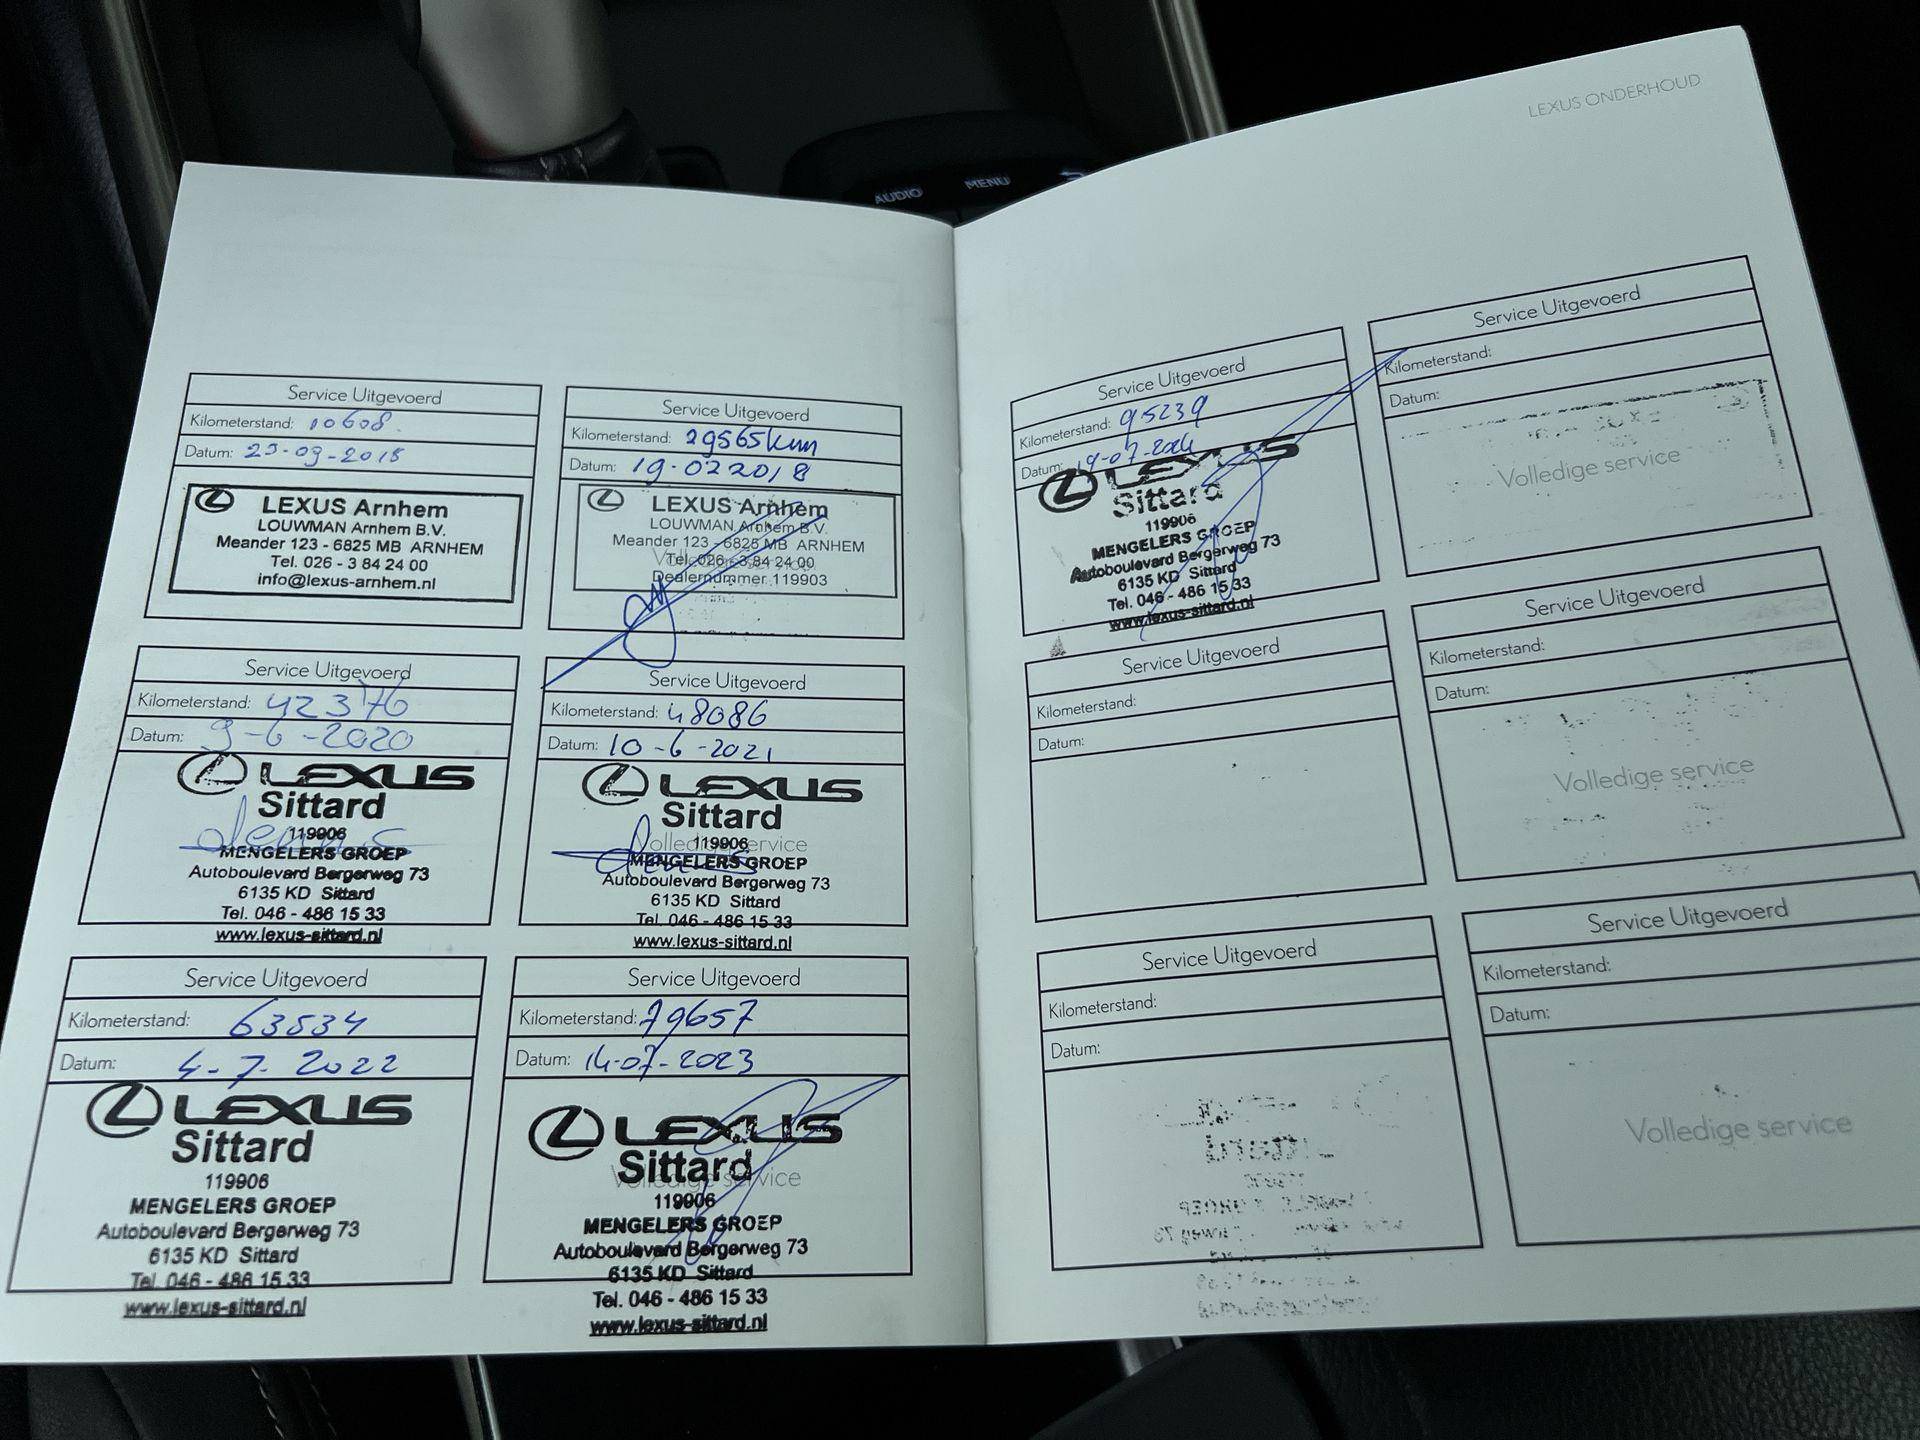 AUDIO
MENU
LEXUS ONDERHOUD
Service Uitgevoerd
Kilometerstand: 10608.
Datum: 25-09-2018
LEXUS Arnhem
LOUWMAN Arnhem B.V.
Meander 123 - 6825 MB ARNHEM
Tel. 026 - 3 84 24 00
info@lexus-arnhem.nl
Service Uitgevoerd
Kilometerstand: 29565km
Datum: 19-02 2018
LEXUS Arnhem
LOUWMAN Arnhem B.V.
Meander 123 - 6825 MB ARNHEM
Tel. 026 - 3 84 24 00
Dealernummer 119903
Service Uitgevoerd
Kilometerstand: 42376
Datum: 9-6-2020
LEXUS
Sittard
119906
MENGELERS GROEP
Autoboulevard Bergerweg 73
6135 KD Sittard
Tel. 046 - 486 15 33
www.lexus-sittard.nl
Service Uitgevoerd
Kilometerstand: 48086
Datum: 10-6-2021
LEXUS
Sittard
Volledige service
119906
MENGELERS GROEP
Autoboulevard Bergerweg 73
6135 KD Sittard
Tel. 046 - 486 15 33
www.lexus-sittard.nl
Service Uitgevoerd
Kilometerstand: 63534
Datum: 4-7-2022
LEXUS
Sittard
119906
MENGELERS GROEP
Autoboulevard Bergerweg 73
6135 KD Sittard
Tel. 046 - 486 15 33
www.lexus-sittard.nl
Service Uitgevoerd
Kilometerstand: 79657
Datum: 14-07-2023
LEXUS
Sittard
Volledige service
119906
MENGELERS GROEP
Autoboulevard Bergerweg 73
6135 KD Sittard
Tel. 046 - 486 15 33
www.lexus-sittard.nl
Service Uitgevoerd
Kilometerstand: 95239
Datum: 19-07-2024
LEXUS
Sittard
119906
MENGELERS GROEP
Autoboulevard Bergerweg 73
6135 KD Sittard
Tel. 046 - 486 15 33
www.lexus-sittard.nl
Service Uitgevoerd
Kilometerstand:
Datum:
Volledige service
Service Uitgevoerd
Kilometerstand:
Datum:
Service Uitgevoerd
Kilometerstand:
Datum:
Volledige service
Service Uitgevoerd
Kilometerstand:
Datum:
Service Uitgevoerd
Kilometerstand:
Datum:
Volledige service